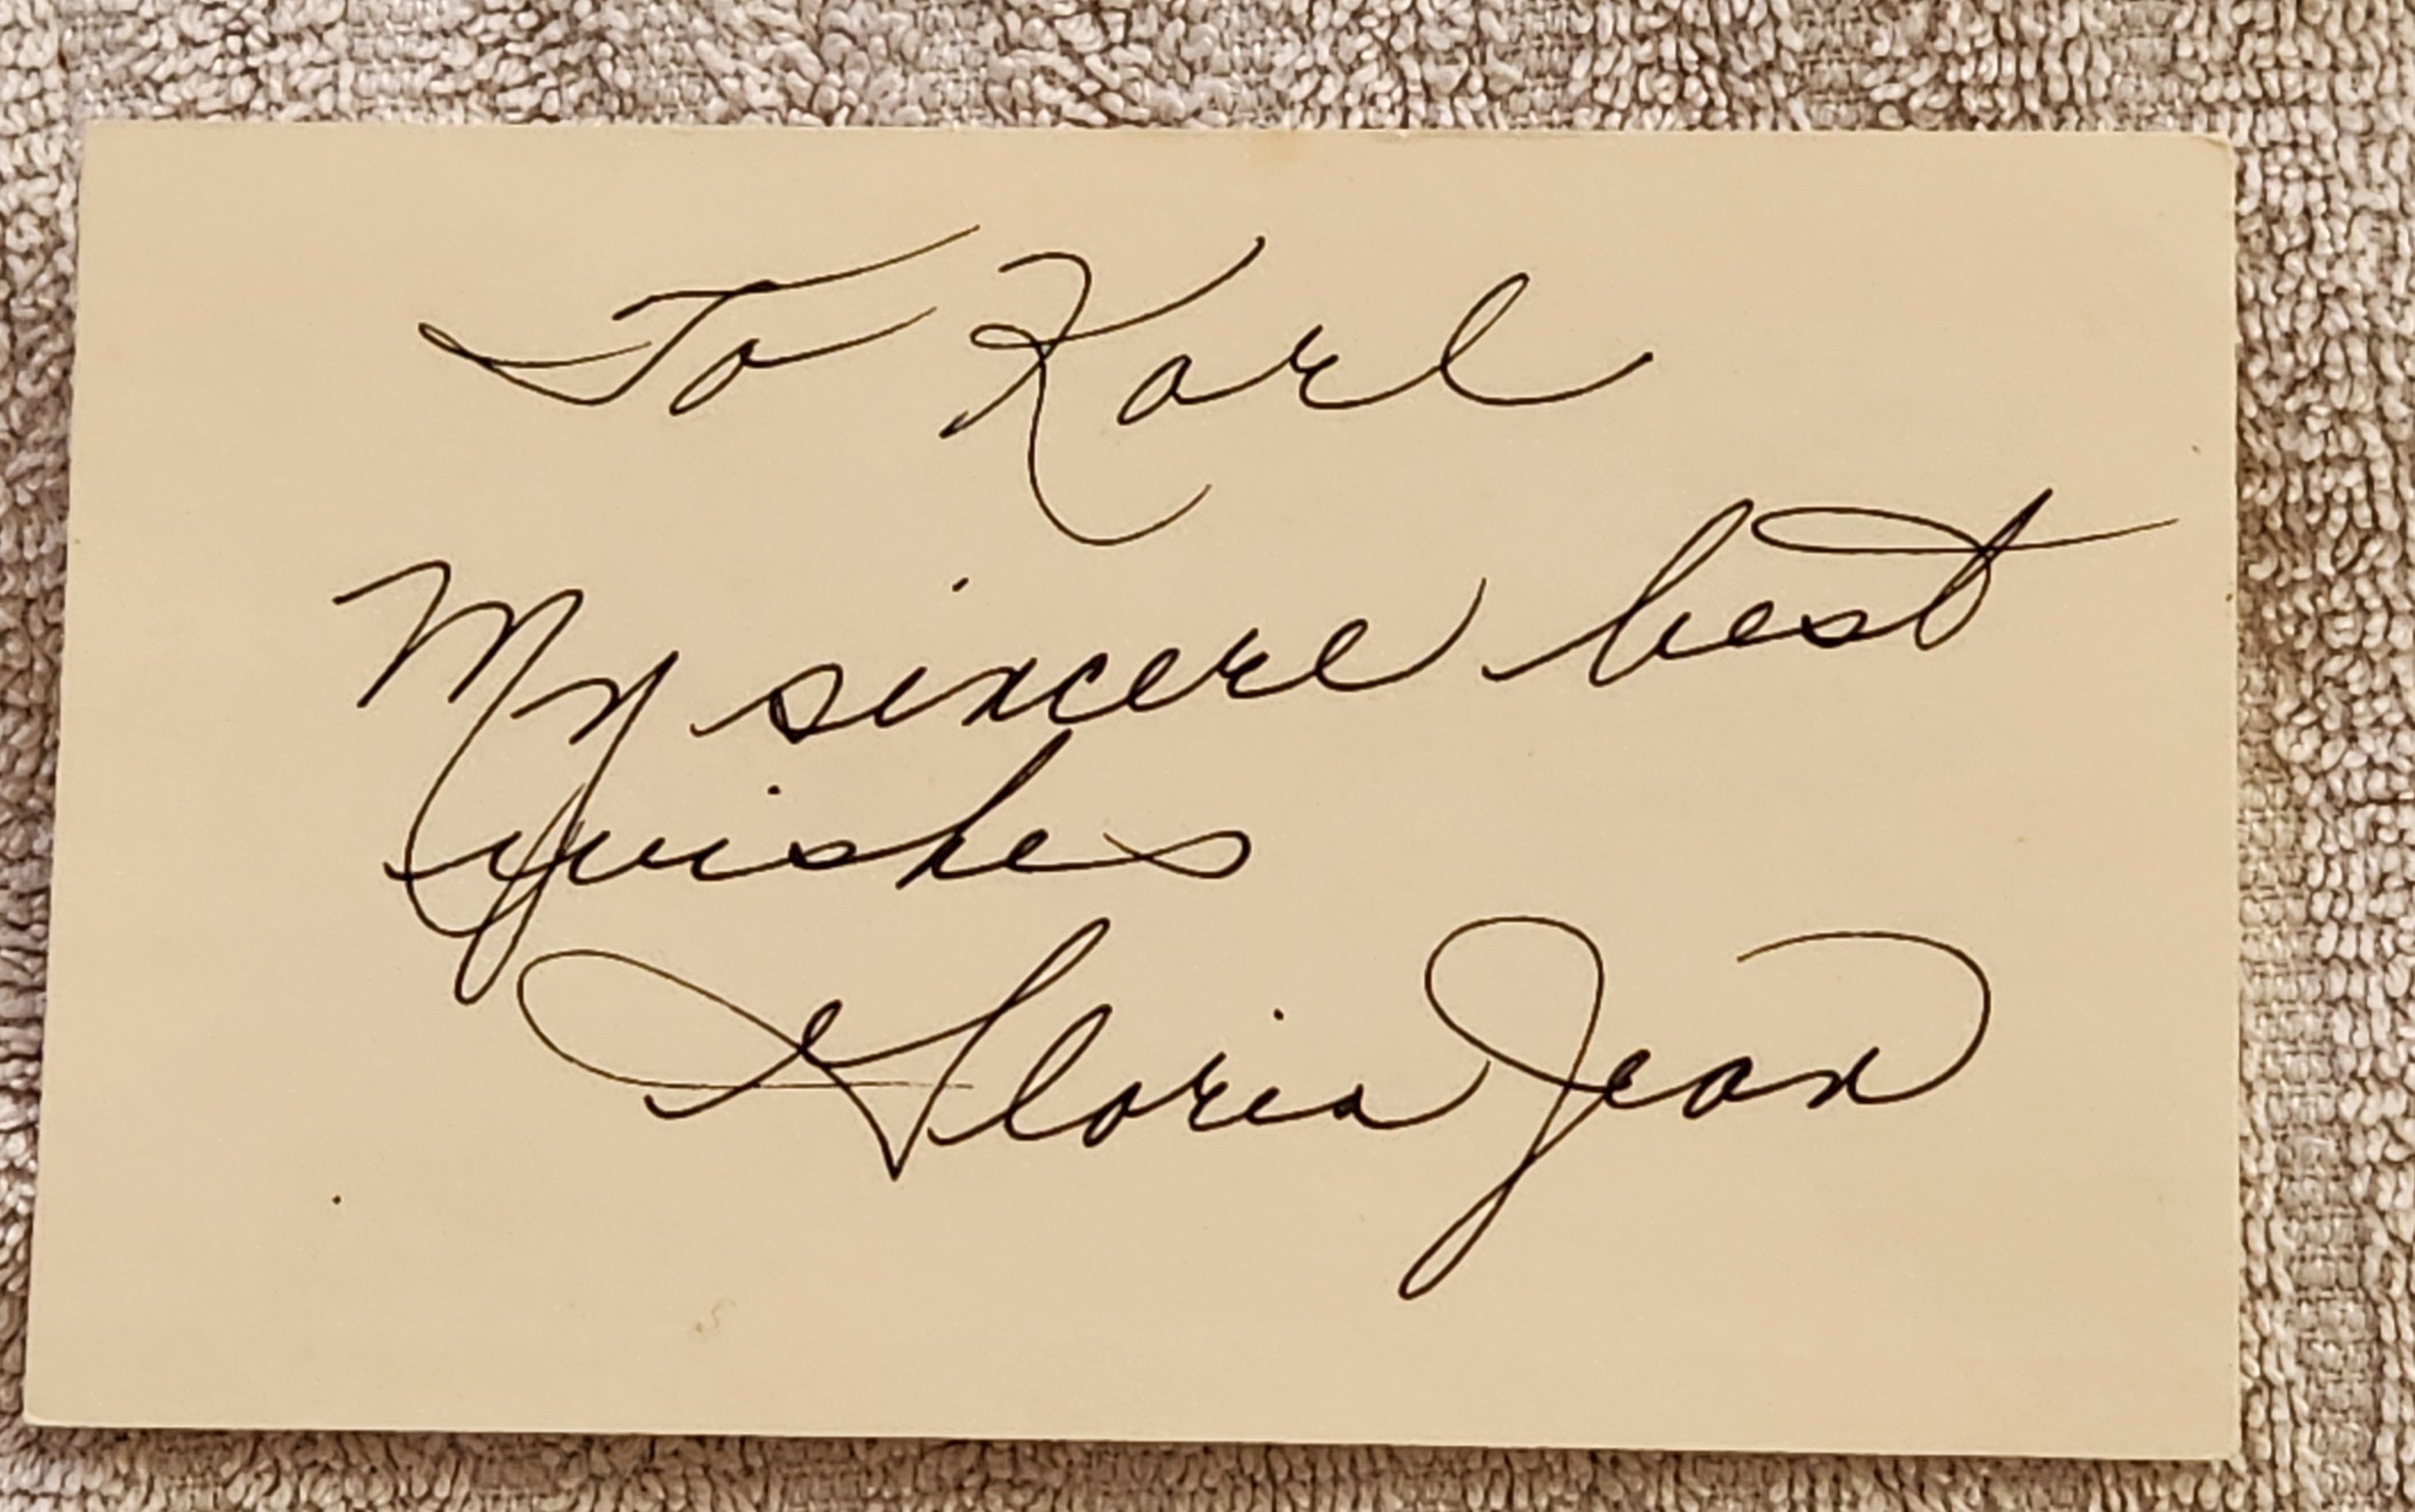 To Karl
My sincere best
wishes
Gloria Jean